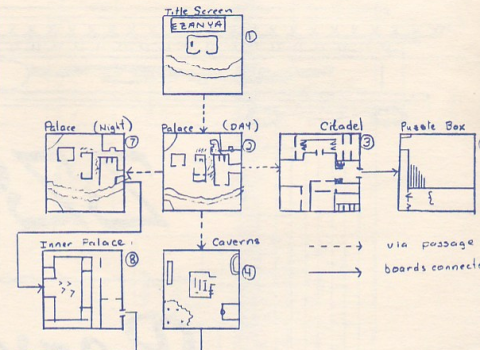 Title Screen
EZANYA
①
Palace (Night)
⑦
Palace (DAY)
②
Citadel
③
Puzzle Box
Inner Palace.
⑧
Caverns
④
via passage
boards connecte